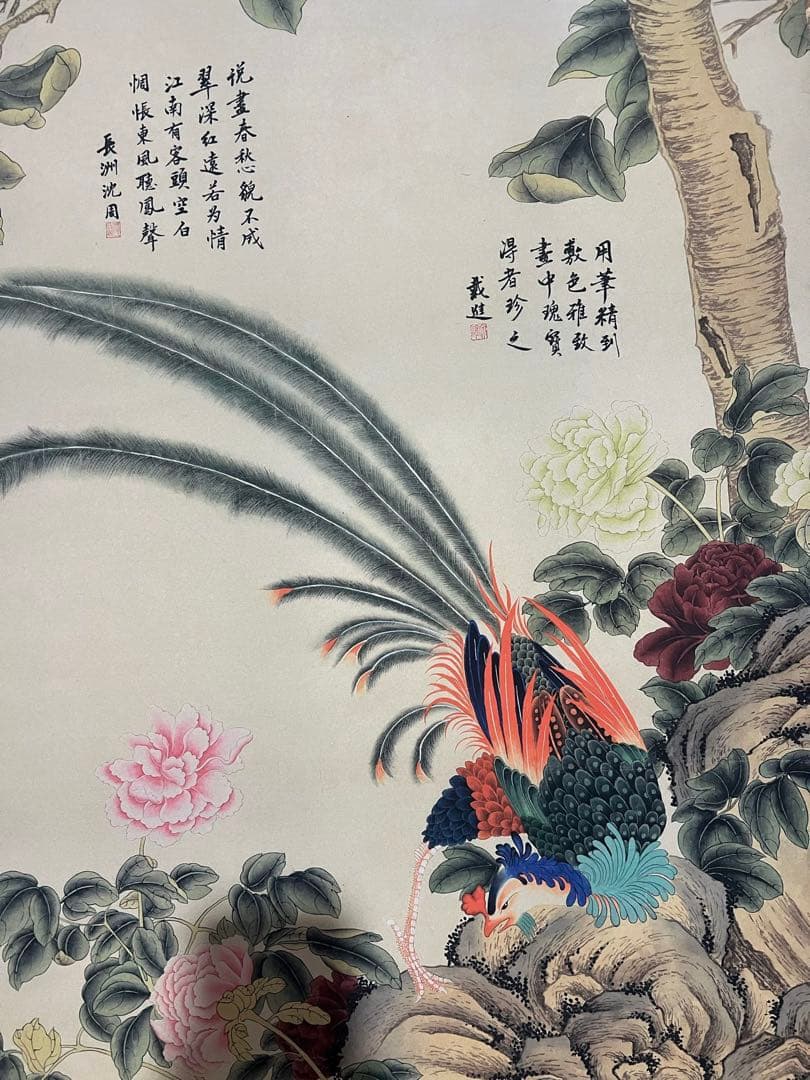 用筆精到
敷色雅致
畫中瑰寶
得者珍之
戴進
说盡春愁貌不成
翠深红遠若为情
江南有客頭空白
惆悵東風聽鳳聲
長洲沈周